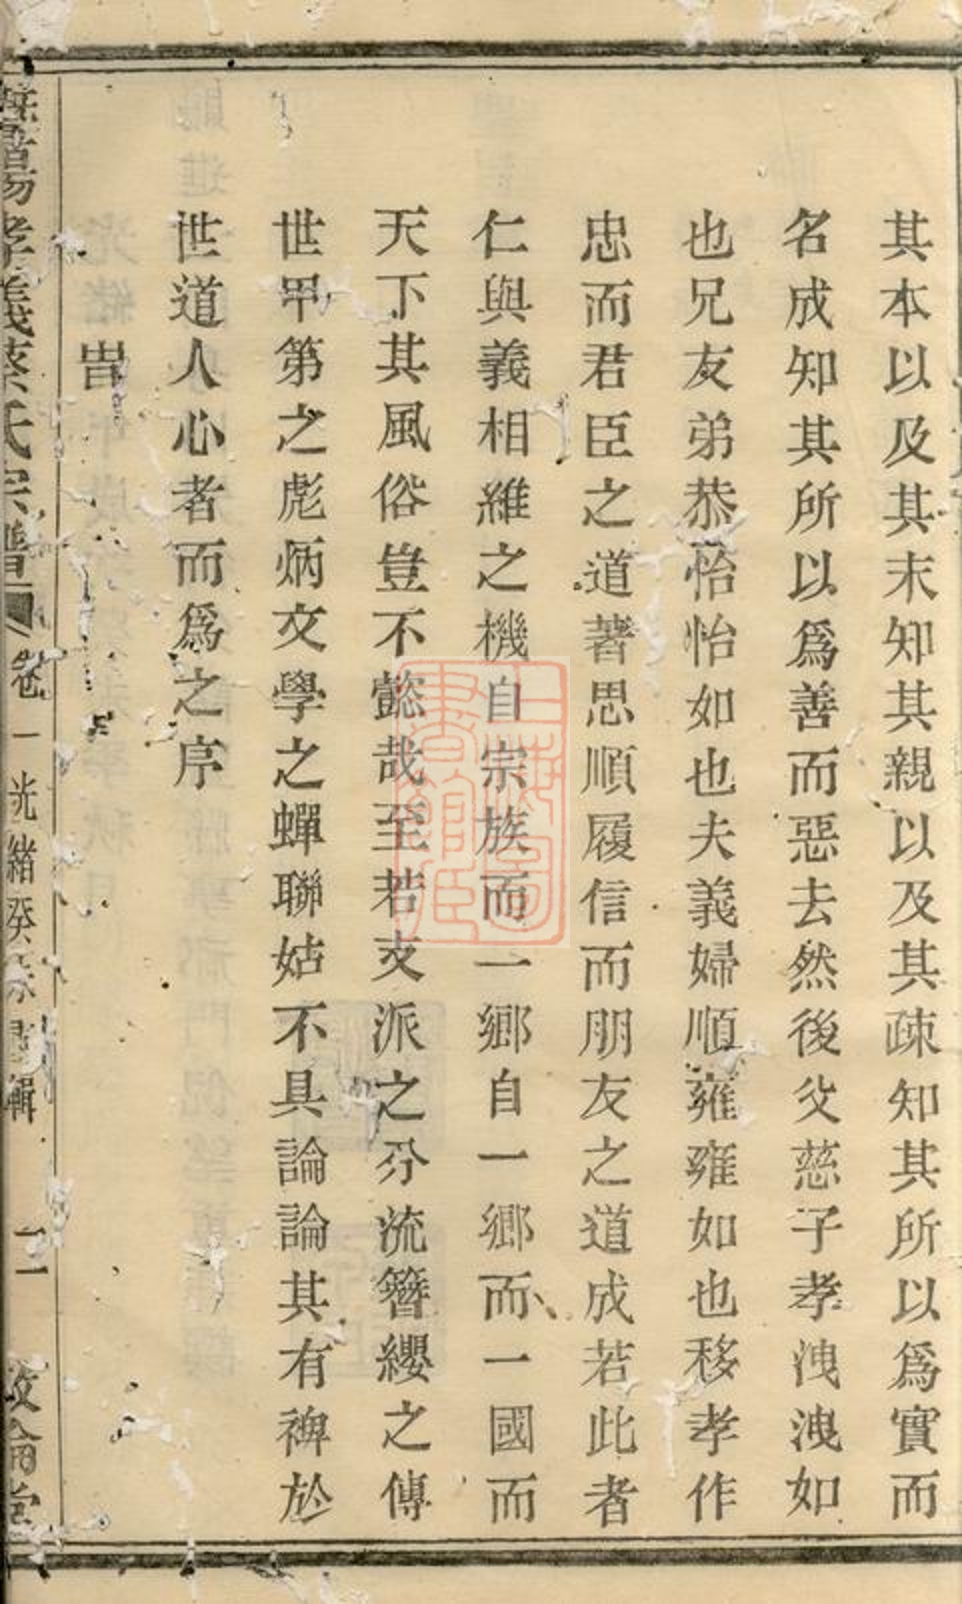 其本以及其末知其親以及其疎知其所以爲實而
名成知其所以爲善而惡去然後父慈子孝洩洩如
也兄友弟恭怡怡如也夫義婦順雍雍如也移孝作
忠而君臣之道著思順履信而朋友之道成若此者
仁與義相維之機自宗族而一鄉自一鄉而一國而
天下其風俗豈不懿哉至若支派之分流簪纓之傳
世甲第之彪炳文學之蟬聯姑不具論論其有裨於
世道人心者而爲之序
旹
暨陽孝義蔡氏宗譜 卷一 光緒癸 輯 二 敘倫堂
上海圖書館藏